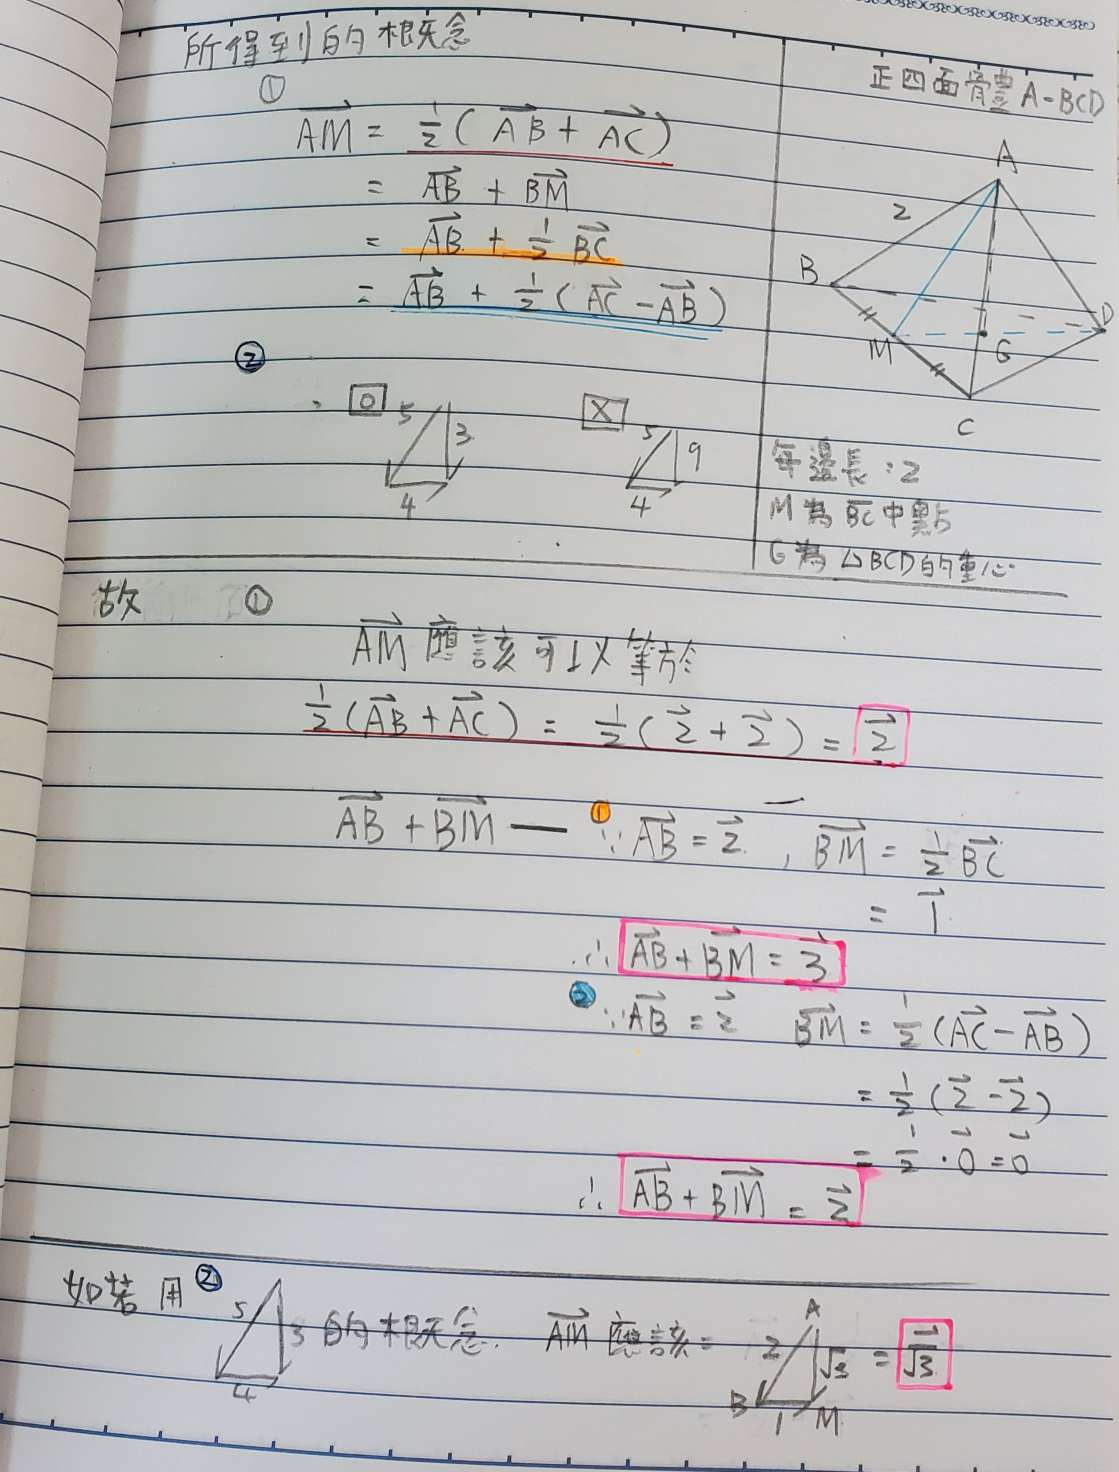 所得到的概念
①
$\overrightarrow{AM} = \frac{1}{2}(\overrightarrow{AB} + \overrightarrow{AC})$
$= \overrightarrow{AB} + \overrightarrow{BM}$
$= \overrightarrow{AB} + \frac{1}{2}\overrightarrow{BC}$
$= \overrightarrow{AB} + \frac{1}{2}(\overrightarrow{AC} - \overrightarrow{AB})$
②
O 5 3 4
X 5 9 4
正四面體 A-BCD
A
2
B
D
M
G
C
每邊長：2
M為$\overline{BC}$中點
G為△BCD的重心
故 ①
$\overrightarrow{AM}$ 應該可以等於
$\frac{1}{2}(\overrightarrow{AB} + \overrightarrow{AC}) = \frac{1}{2}(\vec{2} + \vec{2}) = \vec{2}$
$\overrightarrow{AB} + \overrightarrow{BM}$ — ① ∵ $\overrightarrow{AB} = \vec{2}$, $\overrightarrow{BM} = \frac{1}{2}\overrightarrow{BC}$
$= \vec{1}$
∴ $\overrightarrow{AB} + \overrightarrow{BM} = \vec{3}$
② ∵ $\overrightarrow{AB} = \vec{2}$ $\overrightarrow{BM} = \frac{1}{2}(\overrightarrow{AC} - \overrightarrow{AB})$
$= \frac{1}{2}(\vec{2} - \vec{2})$
$= \frac{1}{2} \cdot \vec{0} = \vec{0}$
∴ $\overrightarrow{AB} + \overrightarrow{BM} = \vec{2}$
如若用② 5 3 4 的概念. $\overrightarrow{AM}$ 應該= A 2 $\sqrt{3}$ B 1 M = $\overrightarrow{\sqrt{3}}$